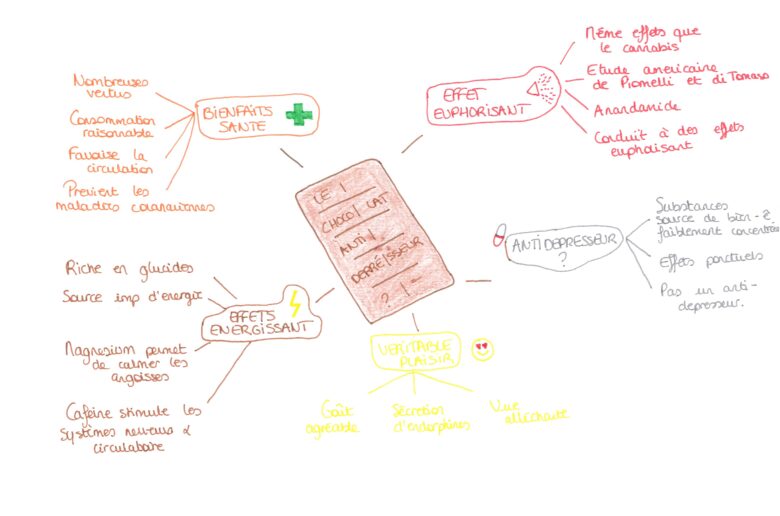 LE
CHOCOLAT
ANTI
DEPRESSEUR
?
BIENFAITS
SANTE
Nombreuses
vertus
Consommation
raisonnable
Favorise la
circulation
Previent les
maladies coronariennes
EFFET
EUPHORISANT
Même effets que
le cannabis
Etude américaine
de Piomelli et di Tomaso
Anandamide
Conduit à des effets
euphorisant
ANTIDEPRESSEUR
?
Substances
source de bien-ê
faiblement concentrées
Effets ponctuels
Pas un anti-
depresseur.
VERITABLE
PLAISIR
Goût
agréable
Sécrétion
d'endorphines
Vue
alléchante
EFFETS
ENERGISSANT
Riche en glucides
Source imp d'energie
Magnesium permet
de calmer les
angoisses
Caféine stimule les
systèmes nerveux &
circulatoire